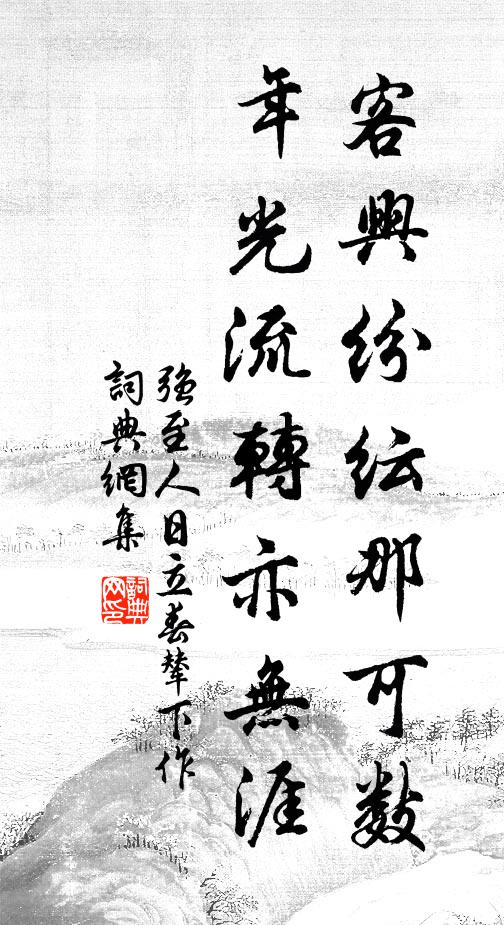 客興紛紜那可數
年光流轉亦無涯
強至人日立春輦下作
詞典網集
詞典网印